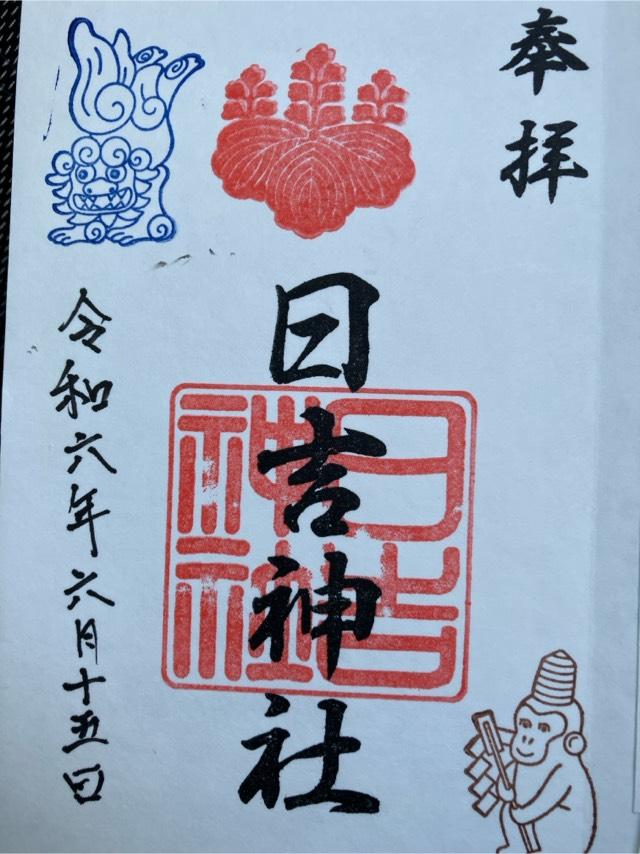 奉拝
日吉神社
日吉神社
令和六年六月十五日